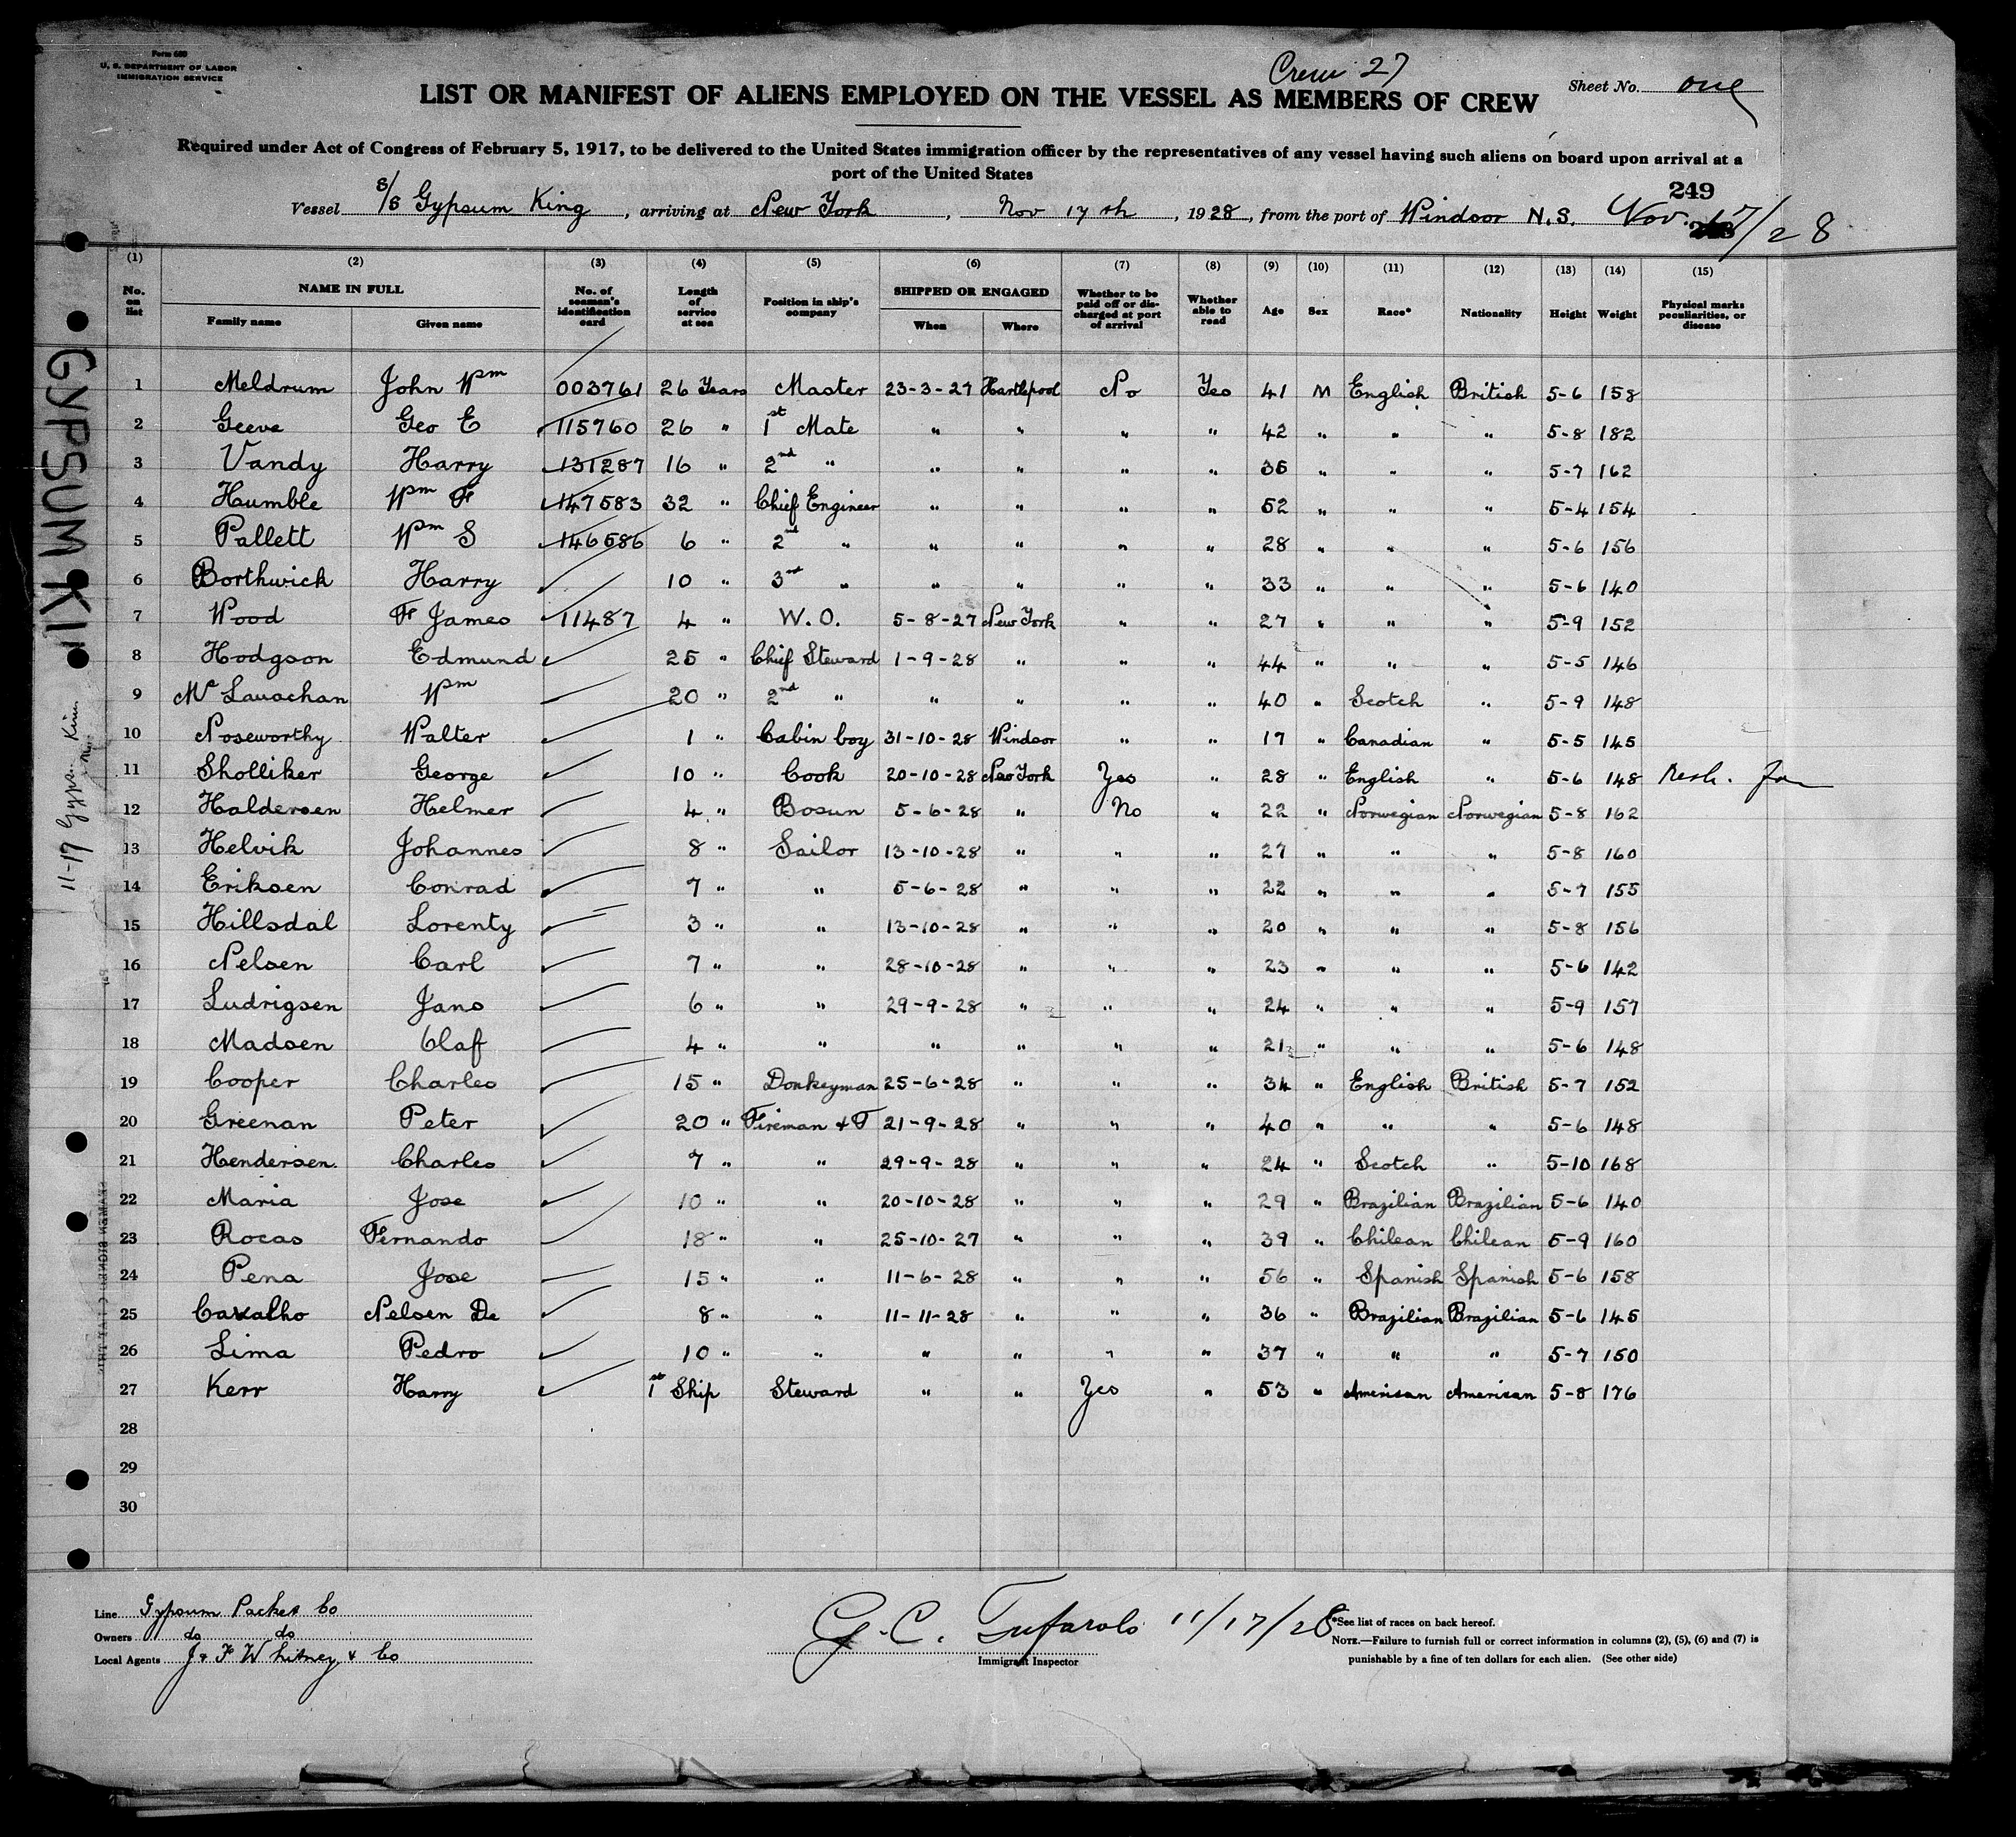 Form 680
U. S. DEPARTMENT OF LABOR
IMMIGRATION SERVICE
Crew 27
Sheet No. one
LIST OR MANIFEST OF ALIENS EMPLOYED ON THE VESSEL AS MEMBERS OF CREW
Required under Act of Congress of February 5, 1917, to be delivered to the United States immigration officer by the representatives of any vessel having such aliens on board upon arrival at a
port of the United States
249
Vessel S/S Gypsum King, arriving at New York, Nov 17th, 1928, from the port of Windsor N.S. Nov. 17/28
(1) (2) (3) (4) (5) (6) (7) (8) (9) (10) (11) (12) (13) (14) (15)
No. on list NAME IN FULL Family name Given name No. of seaman's identification card Length of service at sea Position in ship's company SHIPPED OR ENGAGED When Where Whether to be paid off or discharged at port of arrival Whether able to read Age Sex Race* Nationality Height Weight Physical marks peculiarities, or disease
1 Meldrum John Wm 003761 26 Years Master 23-3-27 Hartlepool No Yes 41 M English British 5-6 158
2 Geeve Geo E 115760 26 " 1st Mate " " " " 42 " " " 5-8 182
3 Vandy Harry 131287 16 " 2nd " " " " " 35 " " " 5-7 162
4 Humble Wm F 147583 32 " Chief Engineer " " " " 52 " " " 5-4 154
5 Pallett Wm S 146586 6 " 2nd " " " " " 28 " " " 5-6 156
6 Borthwick Harry 10 " 3rd " " " " " 33 " " " 5-6 140
7 Wood F James 11487 4 " W.O. 5-8-27 New York " " 27 " " " 5-9 152
8 Hodgson Edmund 25 " Chief Steward 1-9-28 " " " 44 " " " 5-5 146
9 Mc Lauachan Wm 20 " 2nd " " " " " 40 " Scotch " 5-9 148
10 Noseworthy Walter 1 " Cabin boy 31-10-28 Windsor " " 17 " Canadian " 5-5 145
11 Sholliker George 10 " Cook 20-10-28 New York Yes " 28 " English " 5-6 148
12 Haldersen Helmer 4 " Bosun 5-6-28 " No " 22 " Norwegian Norwegian 5-8 162
13 Helvik Johannes 8 " Sailor 13-10-28 " " " 27 " " " 5-8 160
14 Eriksen Conrad 7 " " 5-6-28 " " " 22 " " " 5-7 155
15 Hillsdal Lorenty 3 " " 13-10-28 " " " 20 " " " 5-8 156
16 Nelsen Carl 7 " " 28-10-28 " " " 23 " " " 5-6 142
17 Ludrigsen Jans 6 " " 29-9-28 " " " 24 " " " 5-9 157
18 Madsen Olaf 4 " " " " " " 21 " " " 5-6 148
19 Cooper Charles 15 " Donkeyman 25-6-28 " " " 34 " English British 5-7 152
20 Greenan Peter 20 " Fireman & T 21-9-28 " " " 40 " " " 5-6 148
21 Hendersen Charles 7 " " 29-9-28 " " " 24 " Scotch " 5-10 168
22 Maria Jose 10 " " 20-10-28 " " " 29 " Brazilian Brazilian 5-6 140
23 Rocas Fernando 18 " " 25-10-27 " " " 39 " Chilean Chilean 5-9 160
24 Pena Jose 15 " " 11-6-28 " " " 56 " Spanish Spanish 5-6 158
25 Cavalho Nelsen De 8 " " 11-11-28 " " " 36 " Brazilian Brazilian 5-6 145
26 Lima Pedro 10 " " " " " " 37 " " " 5-7 150
27 Kerr Harry 1st Ship Steward " " Yes " 53 " American American 5-8 176
28
29
30
GYPSUM KI
11-17 Gyps. King
Line Gypsum Packet Co
Owners do do
Local Agents J & F Whitney & Co
G. C. Tufarolo 11/17/28
Immigrant Inspector
*See list of races on back hereof.
NOTE.—Failure to furnish full or correct information in columns (2), (5), (6) and (7) is
punishable by a fine of ten dollars for each alien. (See other side)